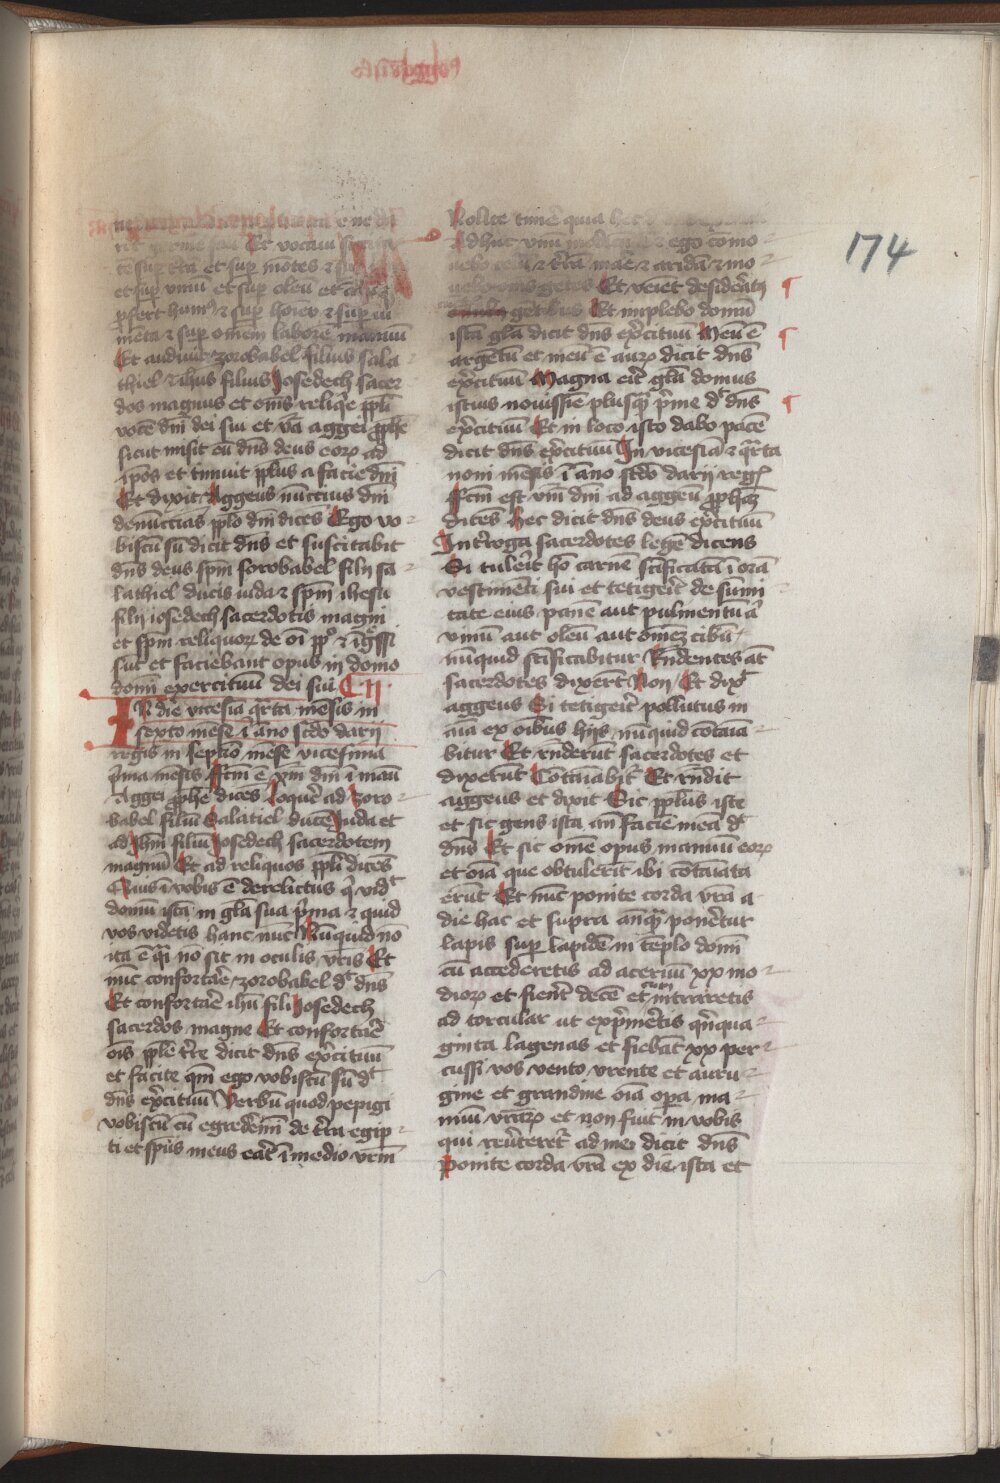 174
rīt germē suū Et vocaui siccitatē
tē sup t̄rā et sup mōtes ⁊
et sup vinū et sup oleū et
ꝓfert humꝰ ⁊ sup hoīes ⁊ sup iu
mēta ⁊ sup omēm laborē manuū
Et audiuit zorobabel filius sala
thiel ⁊ ih̄us filius Josedech sacer
dos magnus et om̄s reliq̄e ppl̄i
vocē dn̄i dei sui et v̄ba aggei ꝓph̄e
sicut misit eū dn̄s deus eoꝝ ad
ip̄os et timuit pplūs a facie dn̄i
Et dixit Aggeus nūccius dn̄i
denūccias pplō dn̄i dicēs Ego vo
biscū sū dicit dn̄s et suscitabit
dn̄s deus sp̄m sorobabel filij sa
lathiel ducis iuda ⁊ sp̄m ihesu
filij iosedech sacerdotis magni
et sp̄m reliquoꝝ de oī pplō ⁊ īgssi
sūt et faciebant opus in domo
domī exercituū dei sui C II
IN die vicesia q̄rta mēsis in
sexto mēse ī āno scdo darij
regis in septīo mēse vicesima
p̄ma mēsis fcm ē v̄m dn̄i ī manū
Aggei ꝓph̄e dicēs Loquē ad zoro
babel filiū Salatiel ducē Juda et
ad Jhm̄ filiū Josedech sacerdotem
magnū Et ad reliquos ppl̄i dicēs
Quis ī vobis ē derelictus q̄ vidt
domū istā in gl̄a sua p̄ma ⁊ quid
vos videtis hanc nūc Nūquid nō
ita ē q̄si nō sit in oculis vr̄is Et
nūc confortāē zorobabel dt dn̄s
Et confortāē ihū fili Josedech
sacerdos magne Et confortāē
oīs pplē t̄re dicit dn̄s ex̄cituū
et facite qm̄ ego vobiscū sū dt
dn̄s ex̄cituū Verbū quod pepigi
vobiscū cū egredēmī de t̄ra egip
ti et sp̄us meus eāt ī medio vr̄m
Nolite timē quia hec
Adhuc vnū modicū ē ⁊ ego cōmo
uebo celū ⁊ t̄rā mare ⁊ aridā ⁊ mo
uebo oms gētes Et veiet desiderātꝰ
gētibus Et implebo domū
istā gl̄a dicit dn̄s ex̄cituū Meū ē
argētū et meū ē auꝝ dicit dn̄s
ex̄cituū Magna eīt gl̄a domus
istius nouissiē plusq̄ p̄me dt dn̄s
ex̄cituū Et in loco isto dabo pacē
dicit dn̄s ex̄cituū In vicesia ⁊ q̄rta
noni mēsis ī āno scdo darij regꝭ
fcm est v̄m dn̄i ad aggeū ꝓph̄aꝫ
dicēs Hec dicit dn̄s deus ex̄cituū
Int̄roga sacerdotes legē dicens
Si tulerit hō carnē sc̄ificatā ī orā
vestimēti sui et tetigerīt de sūmi
tate eius panē aut pulmentū aī
vinū aut oleū aut ōmeꝫ cibū
nūquid sc̄ificabitur Rn̄dentes at̄
sacerdotes dixert Non Et dixt
aggeus Si tetigerīt pollutus in
aīa ex oībus hijs nūquid cōtaīa
bitur Et rn̄derūt sacerdotes et
dixerūt Cōtaīabit̄ Et rn̄dit
aggeus et dixit Sic pplūs iste
et sic gens ista an̄ faciē meā dt
dn̄s Et sic omē opus manuū eoꝝ
et oīa que obtulerīt ibi cōtaīata
erūt Et nūc ponite corda vr̄a a
die hac et supra an̄q̄ ponēetur
lapis sup lapidē in tēplo domī
cū accederetis ad aceruū xx mo
dioꝝ et fierēt decē et cum intraretis
ad torcular ut exp̄mētis qn̄qua
ginta lagenas et fiebāt xx per
cussi vos vento vrente et auru
gine et grandine oīa opa ma
nuū vr̄aꝝ et non fuit in vobis
qui reūteret̄ ad me dicit dn̄s
Ponite corda vr̄a ex die ista et